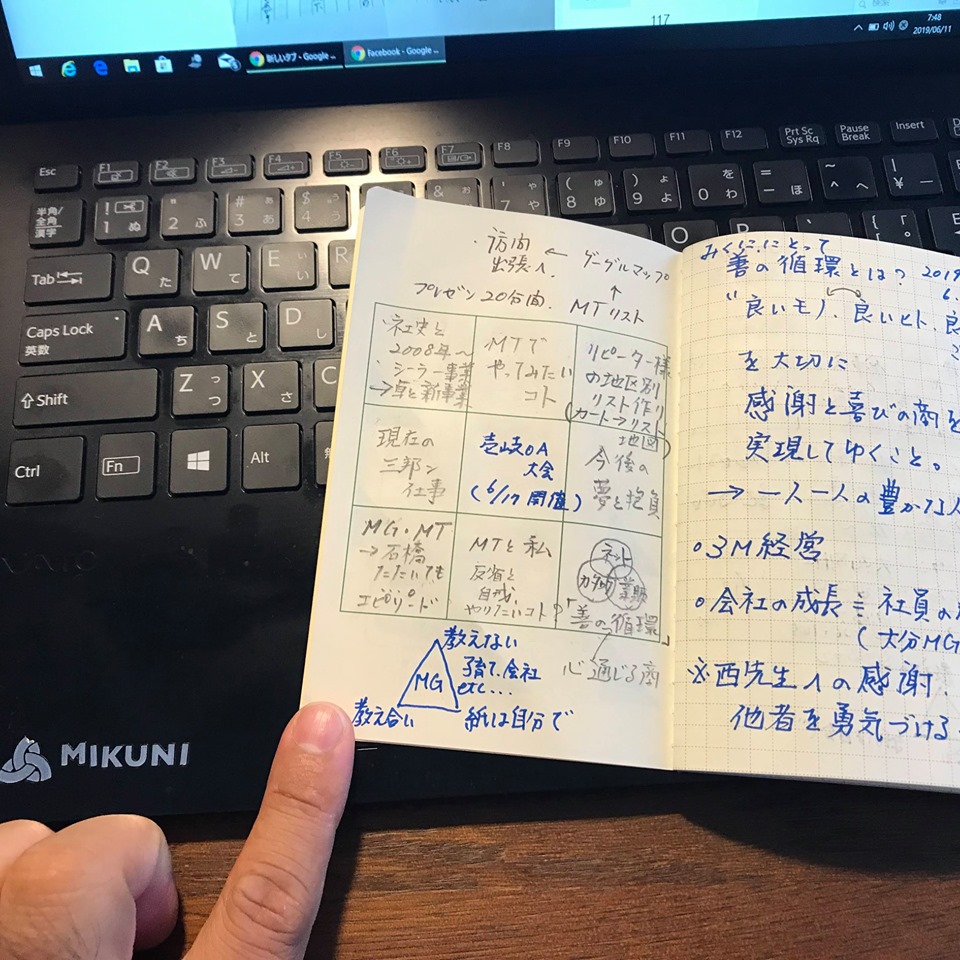 117
7:48
2019/06/11
新しいタブ - Google ...
Facebook - Google ...
Esc
F1
F2
F3
F4
F5
F6
F7
F8
F9
F10
F11
F12
Prt Sc
Sys Rq
Pause
Break
Insert
半角/
全角
漢字
! 1 ぬ
" 2 ふ
# 3 あ
$ 4 う
&
' 7 や
( 8 ゆ
) 9 よ
0 わ を
= - ほ
~ ^ へ
| ¥ ー
Tab
Q た
W て
E い
R
O
P
Caps Lock
英数
A ち
S と
D し
Shift
Z つ
X さ
C
Ctrl
Fn
Alt
MIKUNI
訪問
出張へ ← グーグルマップ
↑
プレゼン20分間. MTリスト
・社史と
2008年〜
シーラー事業
→卓と新事業
MTで
やってみたい
コト
リピーター様
の地区別
リスト作り
(カートラリスト
地図)
現在の
三邦と
仕事
壱岐OA
大会
(6/17 開催)
今後の
夢と抱負
MG・MT
→石橋
たたいても
エピソード
MTと私
反省と
自戒、
やりたいコト
ネット
カタログ
業販
「善の循環」
心通じる商
教えない
MG
子育て、会社
etc...
教え合い
紙は自分で
みくににとって
善の循環とは? 2019
6.
"良いモノ、良いヒト、良
を大切に
感謝と喜びの商を
実現してゆくこと。
→ 一人一人の豊かな人
○3M経営
○会社の成長≒社員の
(大分MG
※西先生への感謝.
他者を勇気づける